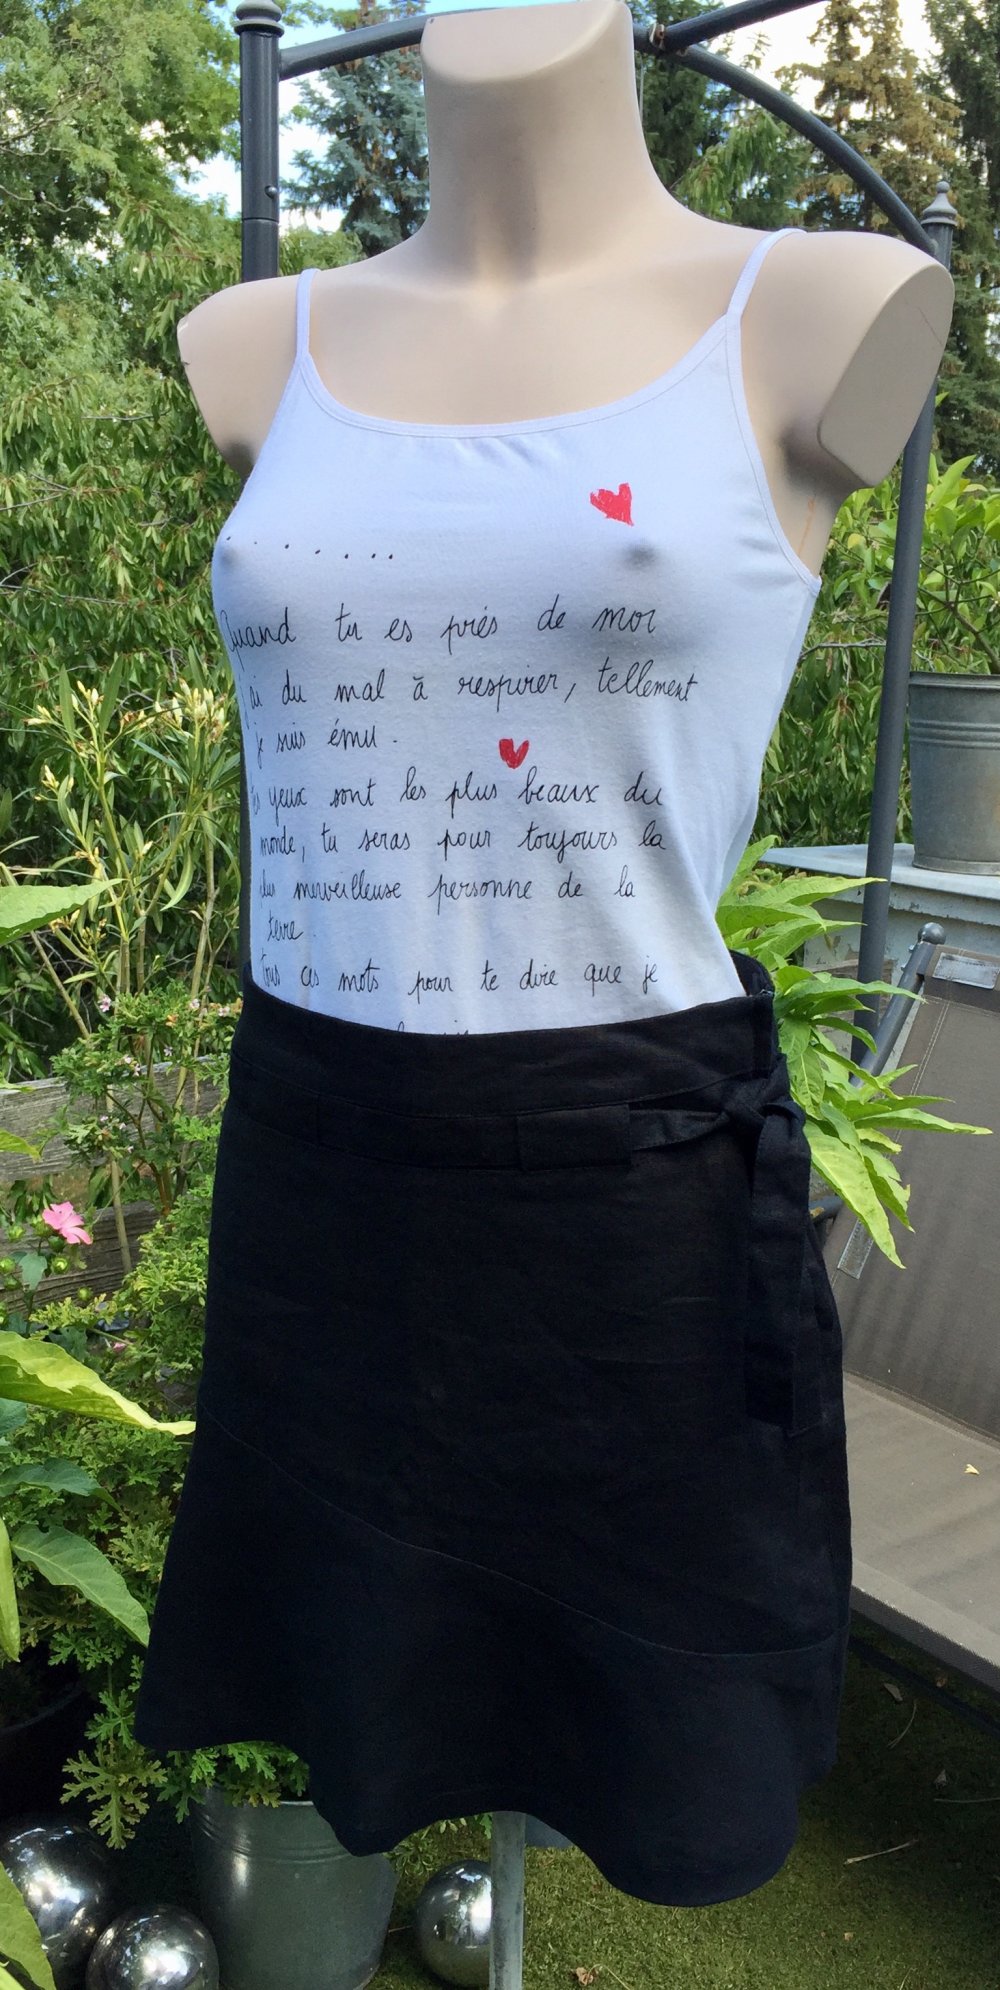 . . . . . . .
Quand tu es près de moi
j'ai du mal à respirer, tellement
je suis ému.
tes yeux sont les plus beaux du
monde, tu seras pour toujours la
plus merveilleuse personne de la
terre.
tous ces mots pour te dire que je